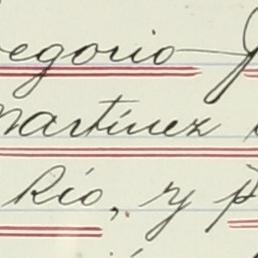 egorio
Martínez
Río, y